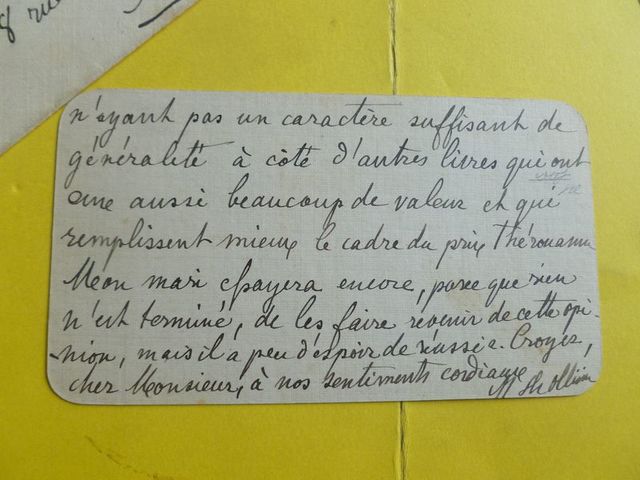 8 rue
n'ayant pas un caractère suffisant de
généralité à côté d'autres livres qui ont
eue aussi beaucoup de valeur et qui
remplissent mieux le cadre du prix Thérouanne
Mon mari essayera encore, parce que rien
n'est terminé, de les faire revenir de cette opi-
nion, mais il a peu d'espoir de réussir. Croyez,
cher Monsieur, à nos sentiments cordiaux